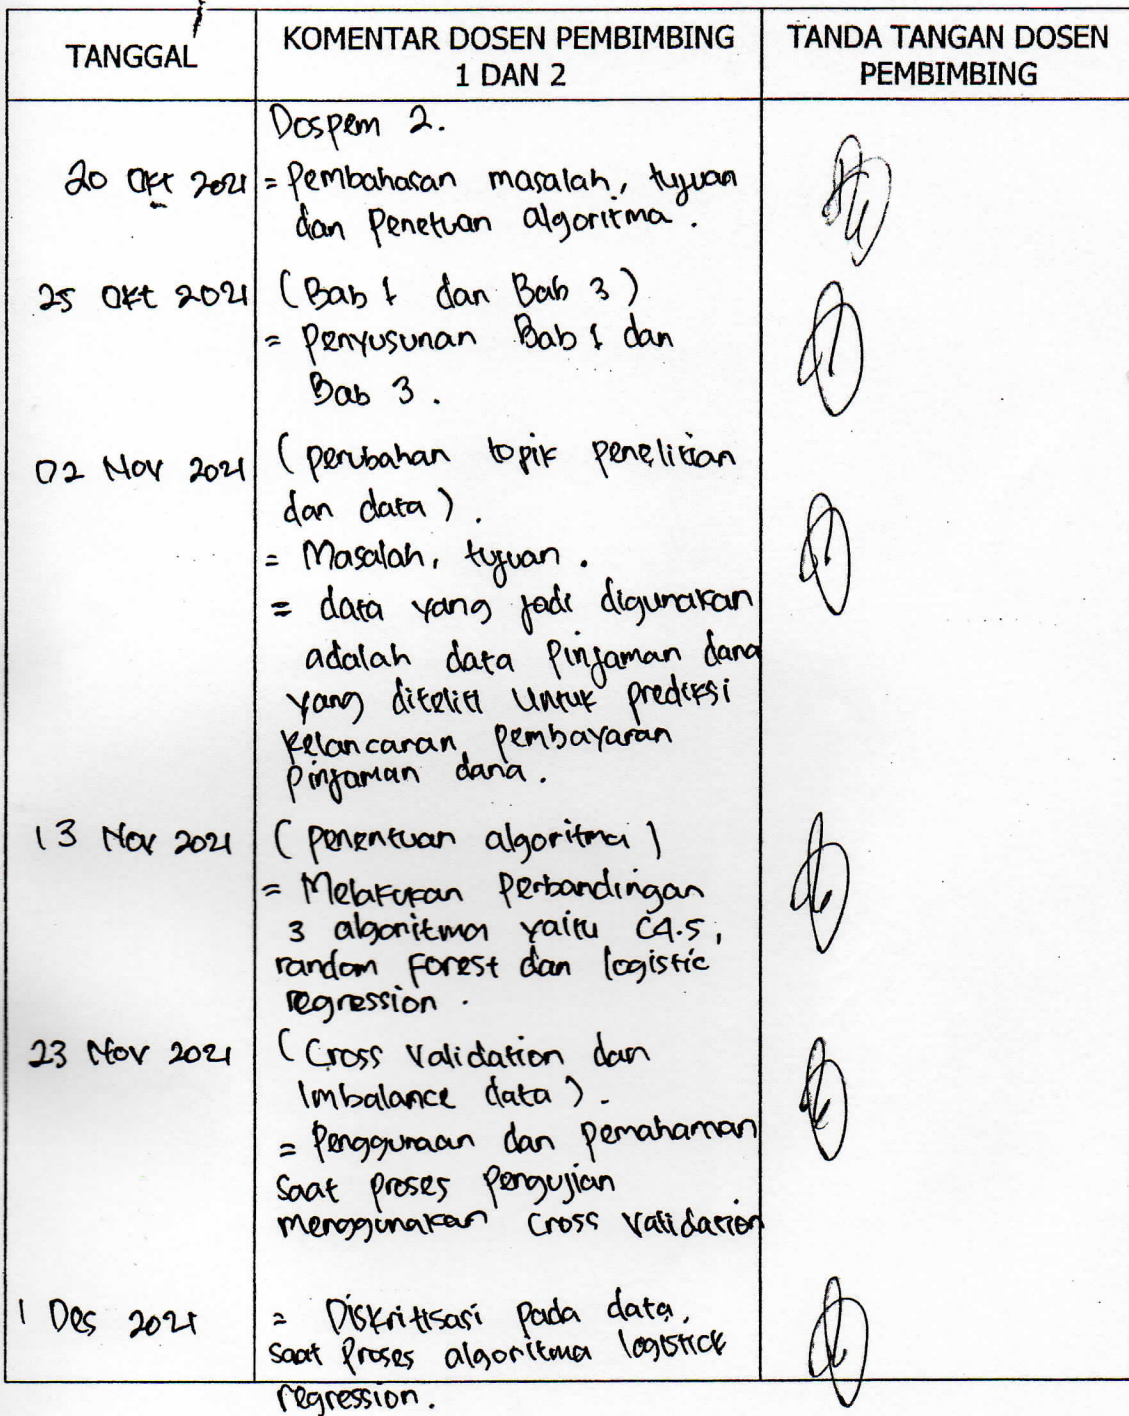 TANGGAL
KOMENTAR DOSEN PEMBIMBING
1 DAN 2
TANDA TANGAN DOSEN
PEMBIMBING
Dospem 2.
20 Okt 2021
= Pembahasan masalah, tujuan
dan Penetuan algoritma.
25 Okt 2021
(Bab 1 dan Bab 3)
= Penyusunan Bab 1 dan
Bab 3.
02 Nov 2021
(perubahan topik penelitian
dan data).
= Masalah, tujuan.
= data yang jadi digunakan
adalah data Pinjaman dana
yang diteliti Untuk prediksi
kelancaran pembayaran
pinjaman dana.
13 Nov 2021
(penentuan algoritma)
= Melakukan Perbandingan
3 algoritma yaitu C4.5,
random Forest dan logistic
regression.
23 Nov 2021
(Cross Validation dan
Imbalance data).
= Penggunaan dan pemahaman
saat proses pengujian
menggunakan Cross validation
1 Des 2021
= Diskritisasi pada data,
saat Proses algoritma logistick
regression.